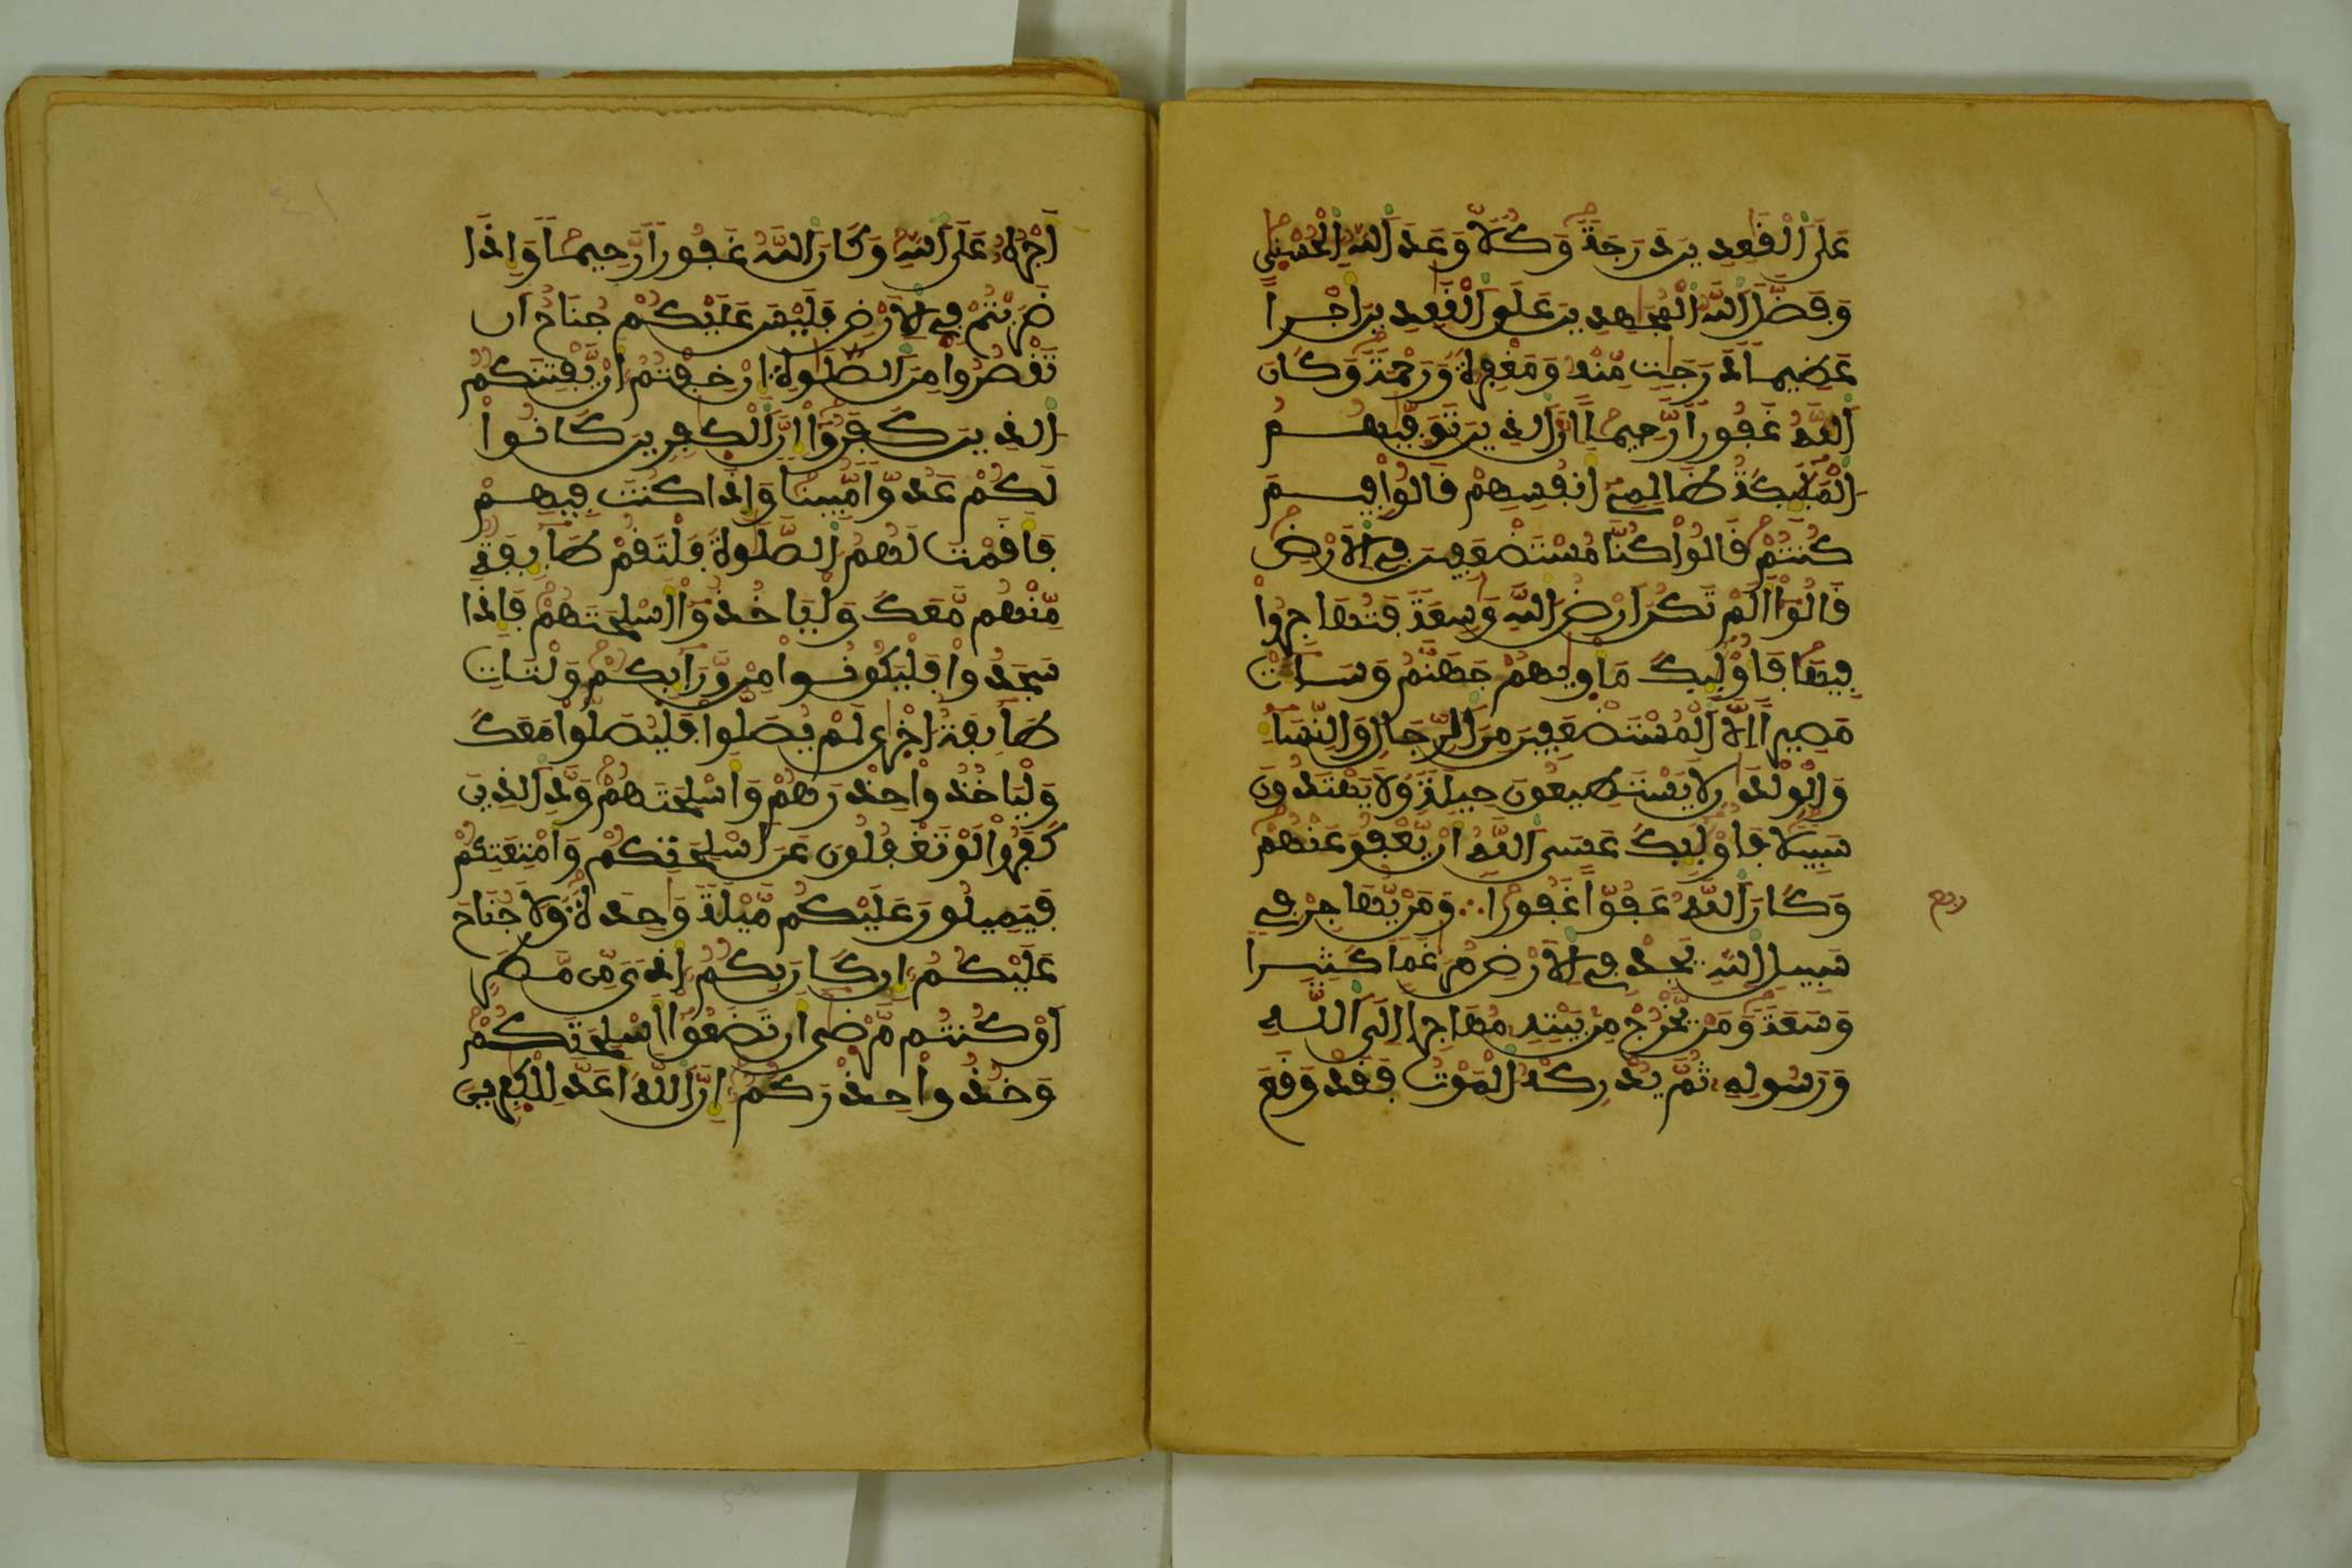 عَلَى ٱلْقَٰعِدِينَ دَرَجَةً وَكُلّاً وَعَدَ ٱللَّهُ ٱلْحُسْنَىٰ
وَفَضَّلَ ٱللَّهُ ٱلْمُجَٰهِدِينَ عَلَى ٱلْقَٰعِدِينَ أَجْراً
عَظِيماً دَرَجَٰتٍ مِّنْهُ وَمَغْفِرَةً وَرَحْمَةً وَكَانَ
ٱللَّهُ غَفُوراً رَّحِيماً إِنَّ ٱلذِينَ تَوَفَّيٰهُمُ
ٱلْمَلَٰٓئِكَةُ ظَالِمِےٓ أَنفُسِهِمْ قَالُواْ فِيمَ
كُنتُمْ قَالُواْ كُنَّا مُسْتَضْعَفِينَ فِے ٱلْأَرْضِ
قَالُوٓاْ أَلَمْ تَكُنَ ارْضُ ٱللَّهِ وَٰسِعَةً فَتُهَاجِرُواْ
فِيهَا فَأُوْلَٰٓئِكَ مَأْوَيٰهُمْ جَهَنَّمُ وَسَآءَتْ
مَصِيراً اِلَّا ٱلْمُسْتَضْعَفِينَ مِنَ ٱلرِّجَالِ وَٱلنِّسَآءِ
وَٱلْوِلْدَٰنِ لَا يَسْتَطِيعُونَ حِيلَةً وَلَا يَهْتَدُونَ
سَبِيلاً فَأُوْلَٰٓئِكَ عَسَى ٱللَّهُ أَنْ يَّعْفُوَ عَنْهُمْ
وَكَانَ ٱللَّهُ عَفُوّاً غَفُوراً ∴ وَمَنْ يُّهَاجِرْ فِے
سَبِيلِ ٱللَّهِ يَجِدْ فِے ٱلْأَرْضِ مُرَٰغَماً كَثِيراً
وَسَعَةً وَمَنْ يَّخْرُجْ مِنۢ بَيْتِهِۦ مُهَاجِراً اِلَى ٱللَّهِ
وَرَسُولِهِۦ ثُمَّ يُدْرِكْهُ ٱلْمَوْتُ فَقَدْ وَقَعَ
أَجْرُهُۥ عَلَى ٱللَّهِ وَكَانَ ٱللَّهُ غَفُوراً رَّحِيماً وَإِذَا
ضَرَبْتُمْ فِے ٱلْأَرْضِ فَلَيْسَ عَلَيْكُمْ جُنَاحٌ أَن
تَقْصُرُواْ مِنَ ٱلصَّلَوٰةِ إِنْ خِفْتُمُۥٓ أَنْ يَّفْتِنَكُمُ
ٱلذِينَ كَفَرُوٓاْ إِنَّ ٱلْكَٰفِرِينَ كَانُواْ
لَكُمْ عَدُوّاً مُّبِيناً وَإِذَا كُنتَ فِيهِمْ
فَأَقَمْتَ لَهُمُ ٱلصَّلَوٰةَ فَلْتَقُمْ طَآئِفَةٌ
مِّنْهُم مَّعَكَ وَلْيَأْخُذُوٓاْ أَسْلِحَتَهُمْ فَإِذَا
سَجَدُواْ فَلْيَكُونُواْ مِنْ وَّرَآئِكُمْ وَلْتَاتِ
طَآئِفَةٌ أُخْرَىٰ لَمْ يُصَلُّواْ فَلْيُصَلُّواْ مَعَكَ
وَلْيَاخُذُواْ حِذْرَهُمْ وَأَسْلِحَتَهُمْ وَدَّ ٱلذِينَ
كَفَرُواْ لَوْ تَغْفُلُونَ عَنَ اَسْلِحَتِكُمْ وَأَمْتِعَتِكُمْ
فَيَمِيلُونَ عَلَيْكُم مَّيْلَةً وَٰحِدَةً وَلَا جُنَاحَ
عَلَيْكُمُۥٓ إِن كَانَ بِكُمُۥٓ أَذىً مِّن مَّطَرٍ
اَوْ كُنتُم مَّرْضَىٰٓ أَن تَضَعُوٓاْ أَسْلِحَتَكُمْ
وَخُذُواْ حِذْرَكُمُۥٓ إِنَّ ٱللَّهَ أَعَدَّ لِلْكَٰفِرِينَ